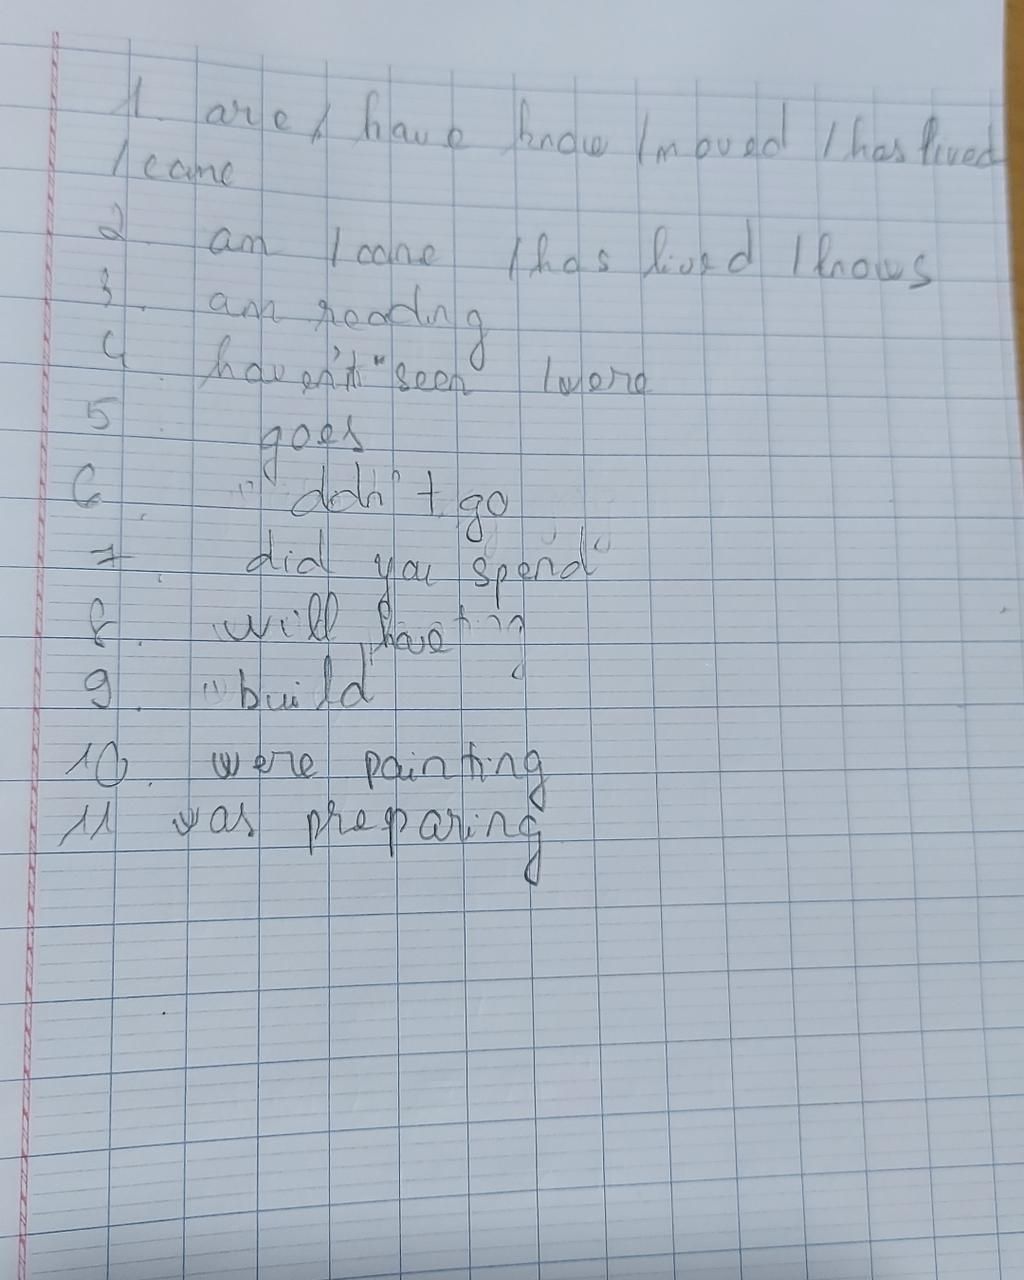 1. are / have know / moved / has lived
/ came
2. am / came / has lived / knows
3. am reading
4. haven't "seen / were
5. goes
6. " don't go
7. did you spend "
8. will have
9. "build"
10. were painting
11 was preparing